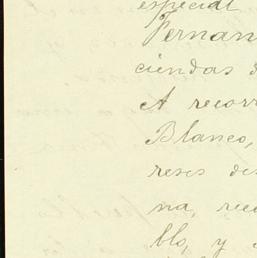 especial
Fernan
ciendas d
A recorr
Blanco,
reses des
na, reco
blo, y